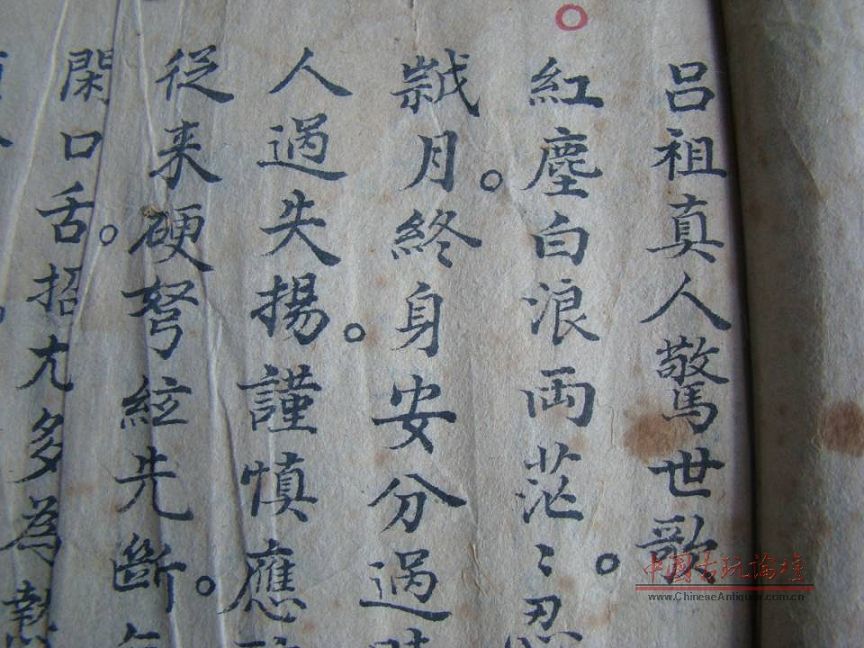 呂祖真人驚世歌
紅塵白浪両茫〻。忍
歲月。終身安分過時
人過失揚。謹慎應
從来硬弩絃先斷。
閑口舌。招尤多為
中國古玩論壇
www.ChineseAntiques.com.cn